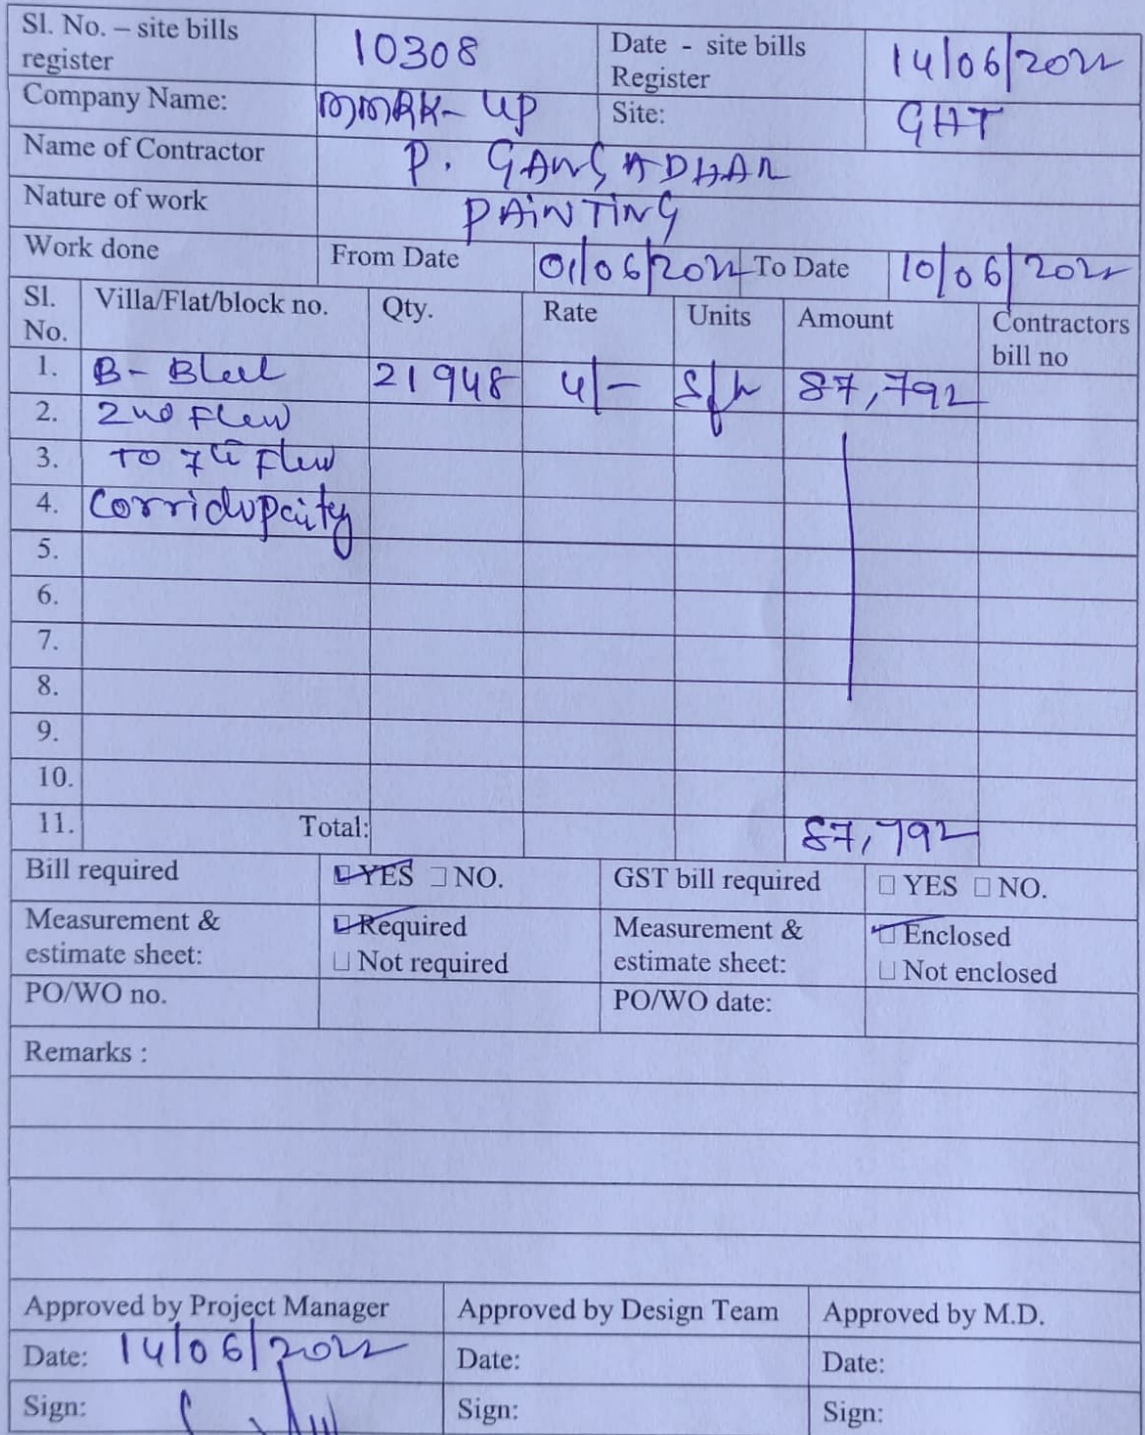 Sl. No. – site bills register 10308 Date - site bills Register 14/06/2022
Company Name: MMRK-UP Site: GHT
Name of Contractor P. GANGADHAR
Nature of work PAINTING
Work done From Date 01/06/2022 To Date 10/06/2022
Sl. No. Villa/Flat/block no. Qty. Rate Units Amount Contractors bill no
1. B- Block 21948 4/- Sft 87,792
2. 2nd Floor
3. TO 7th Floor
4.
5.
6.
7.
8.
9.
10.
11. Total: 87,792
Bill required YES NO. GST bill required YES NO.
Measurement & estimate sheet: Required Not required Measurement & estimate sheet: Enclosed Not enclosed
PO/WO no. PO/WO date:
Remarks :
Approved by Project Manager Approved by Design Team Approved by M.D.
Date: 14/06/2022 Date: Date:
Sign: Sign: Sign: